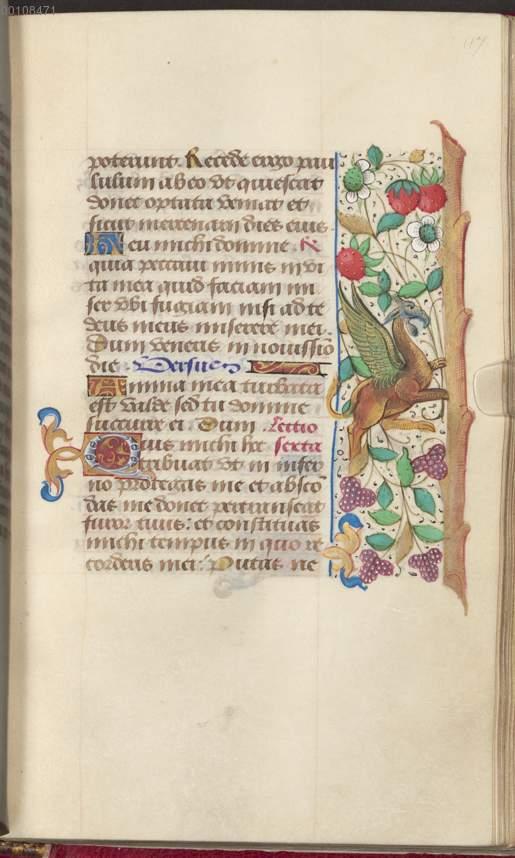 00108471
117
poterunt. Recede ergo pau
lulum ab eo vt quiescat
donec optata veniat et
sicut mercenarii dies eius.
Heu michi domine. R
quia peccavi nimis in vi
ta mea quid faciam mi
ser vbi fugiam nisi ad te
deus meus miserere mei.
Dum veneris in nouissio
die. Versus
Anima mea turbata
est valde sed tu domine
succurre ei. Dum. Lectio
Quis michi hoc sexta
tribuat vt in infer
no protegas me et absco
das me donec pertranseat
furor tuus: et constituas
michi tempus in quo re
cordeus mei. Putas ne